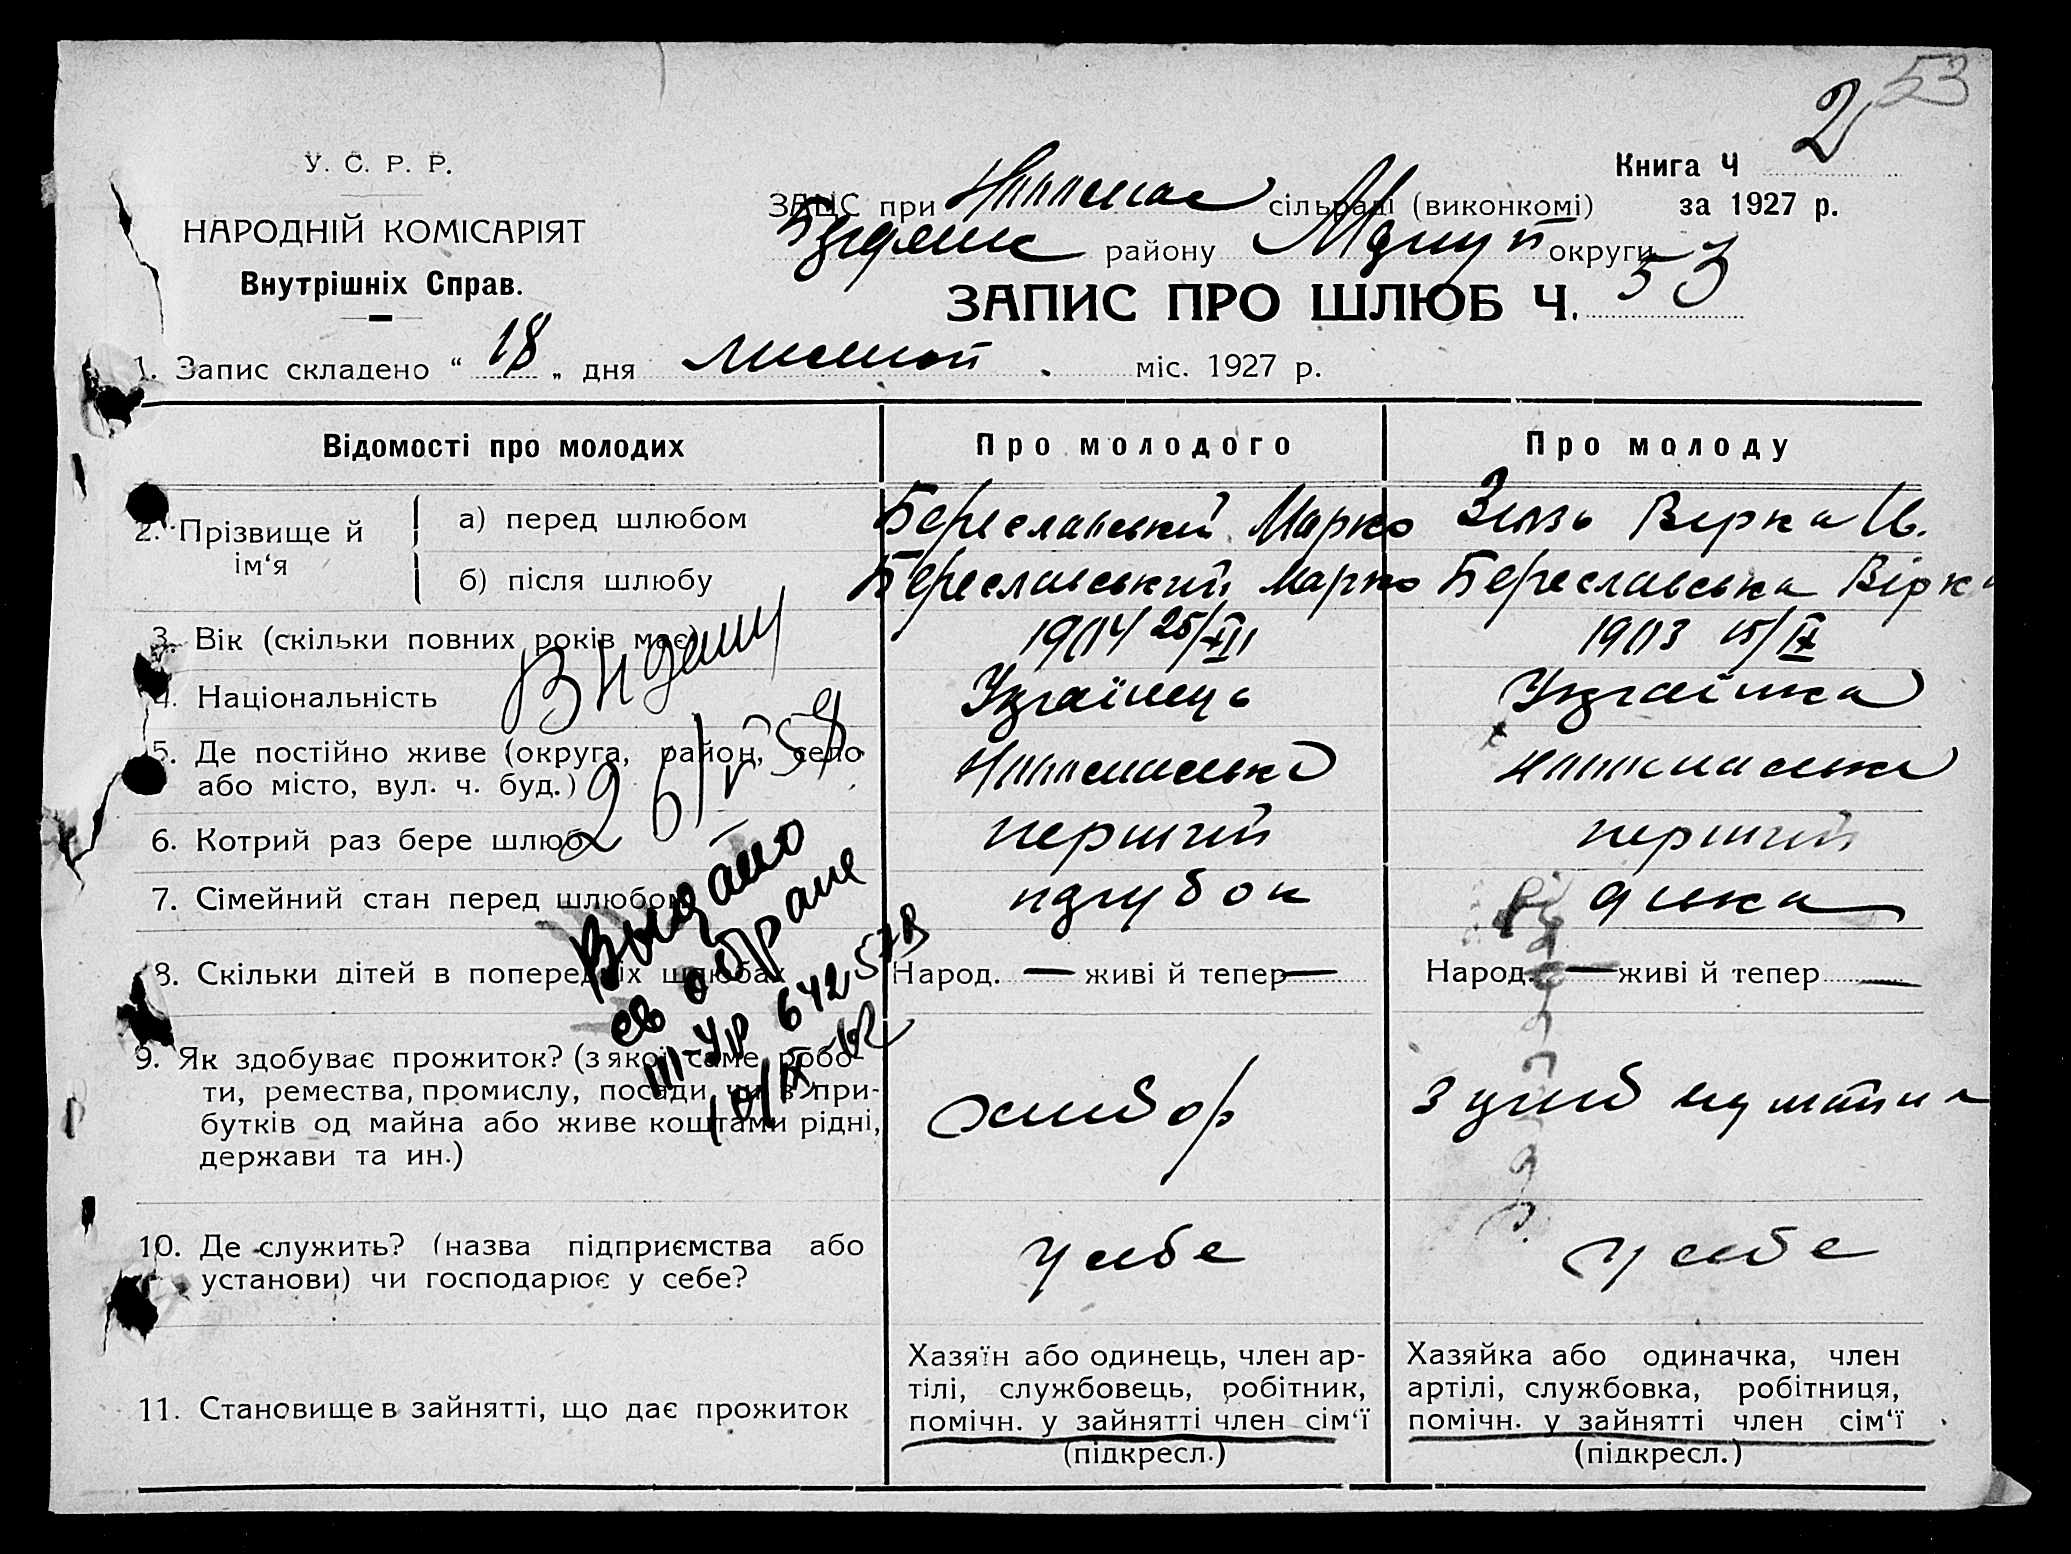 53
2
У. С. Р. Р.
Книга Ч
НАРОДНІЙ КОМІСАРІЯТ
Внутрішніх Справ.
ЗАЦС при сільраді (виконкомі) за 1927 р.
району округи
ЗАПИС ПРО ШЛЮБ Ч. 53
1. Запис складено “ 18 „ дня листоп. міс. 1927 р.
Відомості про молодих Про молодого Про молоду
2. Прізвище й ім‘я
а) перед шлюбом Береславський Марко Вірка Ів.
б) після шлюбу Береславський Марко Береславська Вірка
3. Вік (скільки повних років має) 1904 25/XII 1903 15/IX
4. Національність Українець Українка
5. Де постійно живе (округа, район, село
або місто, вул. ч. буд.)
6. Котрий раз бере шлюб перший перший
7. Сімейний стан перед шлюбом парубок дівка
8. Скільки дітей в попередніх шлюбах Народ. — живі й тепер — Народ. — живі й тепер —
9. Як здобуває прожиток? (з якої саме робо-
ти, ремества, промислу, посади чи з при-
бутків од майна або живе коштами рідні,
держави та ин.)
хлібор
10. Де служить? (назва підприємства або
установи) чи господарює у себе?
у себе у себе
11. Становище в зайнятті, що дає прожиток
Хазяїн або одинець, член ар-
тілі, службовець, робітник,
помічн. у зайнятті член сім‘ї
(підкресл.)
Хазяйка або одиначка, член
артілі, службовка, робітниця,
помічн. у зайнятті член сім‘ї
(підкресл.)
Видано
св о браке
III-УР 642578
10/IX-62